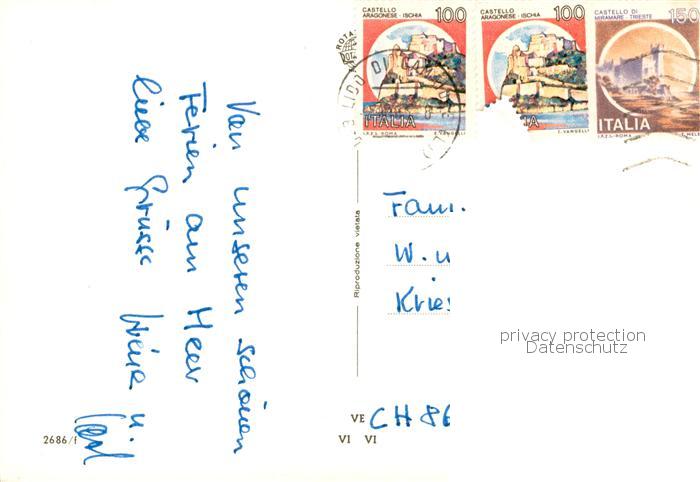 Von unseren schönen
Ferien am Meer
liebe Grüsse
CASTELLO ARAGONESE - ISCHIA 100
ITALIA
I.P.Z.S. - ROMA E. VANGELLI
CASTELLO ARAGONESE - ISCHIA 100
E. VANGELLI
CASTELLO DI MIRAMARE - TRIESTE 150
ITALIA
I.P.Z.S. - ROMA
LIDO DI
Riproduzione vietata
Fam.
W. u
Krie
privacy protection
Datenschutz
CH 86
VE
VI VI
2686/f